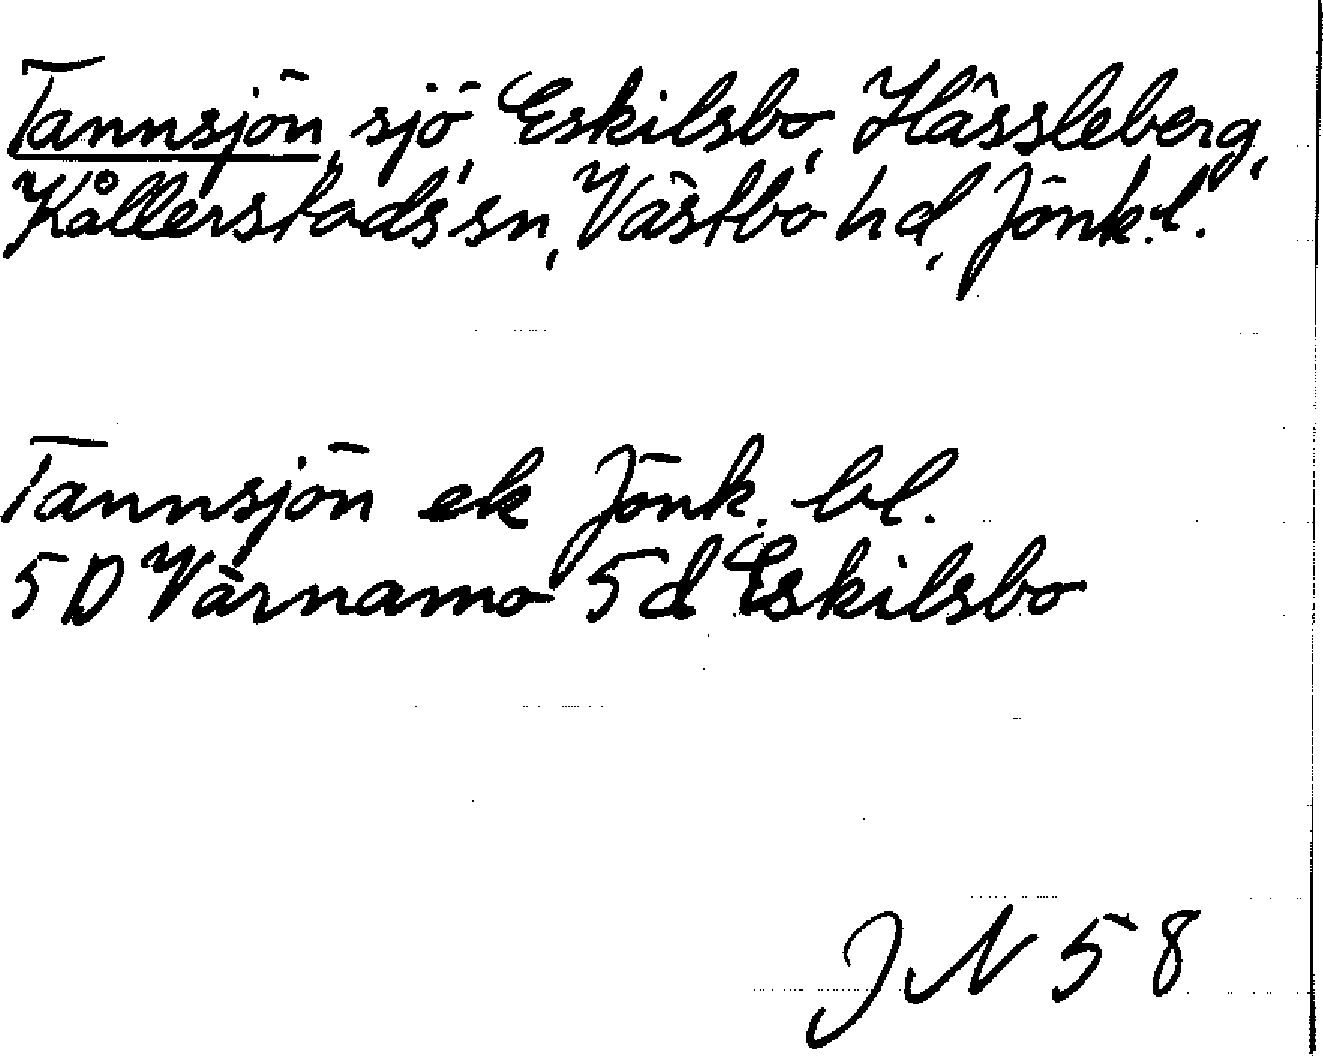 Tannsjön, sjö Eskilsbo, Hässleberg,
Kållerstads sn, Västbo hd, Jönk. l.
Tannsjön ek Jönk. bl.
5D Värnamo 5d Eskilsbo
JN 58